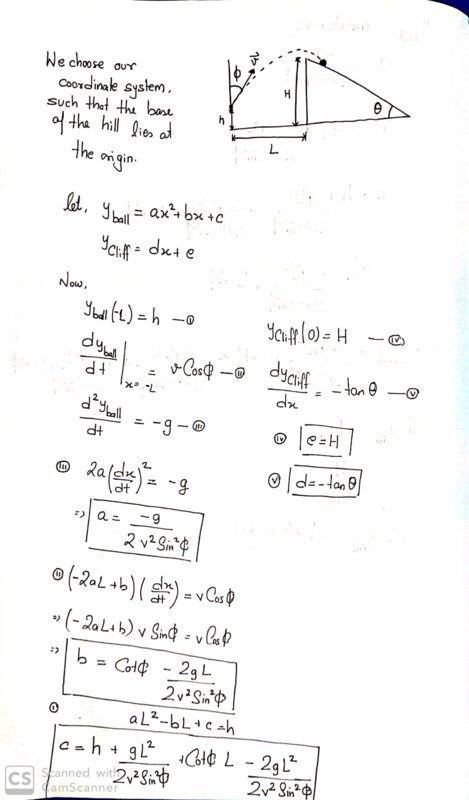 We choose our
coordinate system,
such that the base
of the hill lies at
the origin.
ϕ
v⃗
H
h
θ
L
let, y_ball = ax²+bx+c
y_Cliff = dx+e
Now,
y_ball(-L) = h — ⓘ
dy_ball/dt |_{x=-L} = v Cosϕ — ⓘⓘ
d²y_ball/dt = -g — ⓘⓘⓘ
y_Cliff(0) = H — (iv)
dy_Cliff/dx = -tanθ — (v)
(iv) e=H
(v) d=-tanθ
(iii) 2a(dx/dt)² = -g
=> a = -g/2v²Sin²ϕ
(ii) (-2aL+b)(dx/dt) = vCosϕ
=> (-2aL+b) v Sinϕ = v Cosϕ
=> b = Cotϕ - 2gL/2v²Sin²ϕ
(i) aL²-bL+c=h
c = h + gL²/2v²Sin²ϕ + Cotϕ L - 2gL²/2v²Sin²ϕ
CS Scanned with
CamScanner